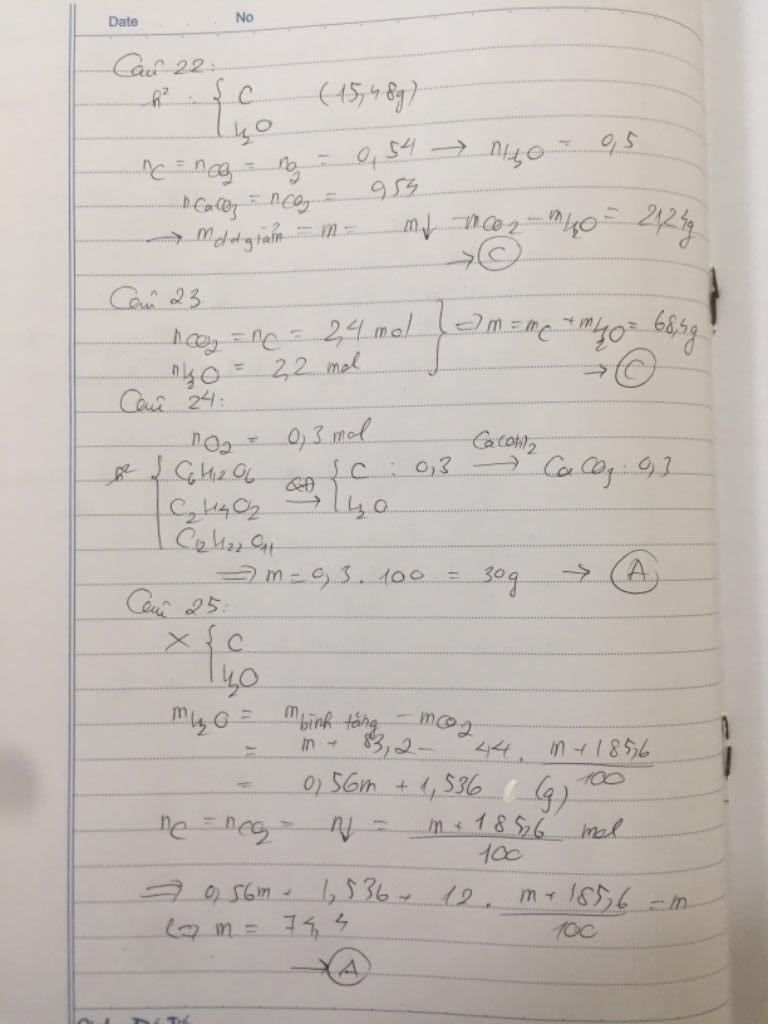 Date No
Câu 22:
h² : { C (15,48g)
H₂O
nC = nCO₂ = nO₂ = 0,54 → nH₂O = 0,5
nCaCO₃ = nCO₂ = 0,54
→ m dd giảm = m = m↓ - mCO₂ - mH₂O = 21,24g
→ Ⓒ
Câu 23
nCO₂ = nC = 2,4 mol } ⇒ m = mC + mH₂O = 68,4g
nH₂O = 2,2 mol → Ⓒ
Câu 24:
nO₂ = 0,3 mol
h² { C₆H₁₂O₆ QĐ → { C : 0,3 Ca(OH)₂ → CaCO₃ : 0,3
C₂H₄O₂ H₂O
C₁₂H₂₂O₁₁
⇒ m = 0,3 . 100 = 30g → Ⓐ
Câu 25:
X { C
H₂O
mH₂O = m bình tăng - mCO₂
= m + 83,2 - 44 . (m + 185,6)/100
= 0,56m + 1,536 (g)
nC = nCO₂ = n↓ = (m + 185,6)/100 mol
⇒ 0,56m + 1,536 + 12 . (m + 185,6)/100 = m
⇔ m = 74,4
→ Ⓐ